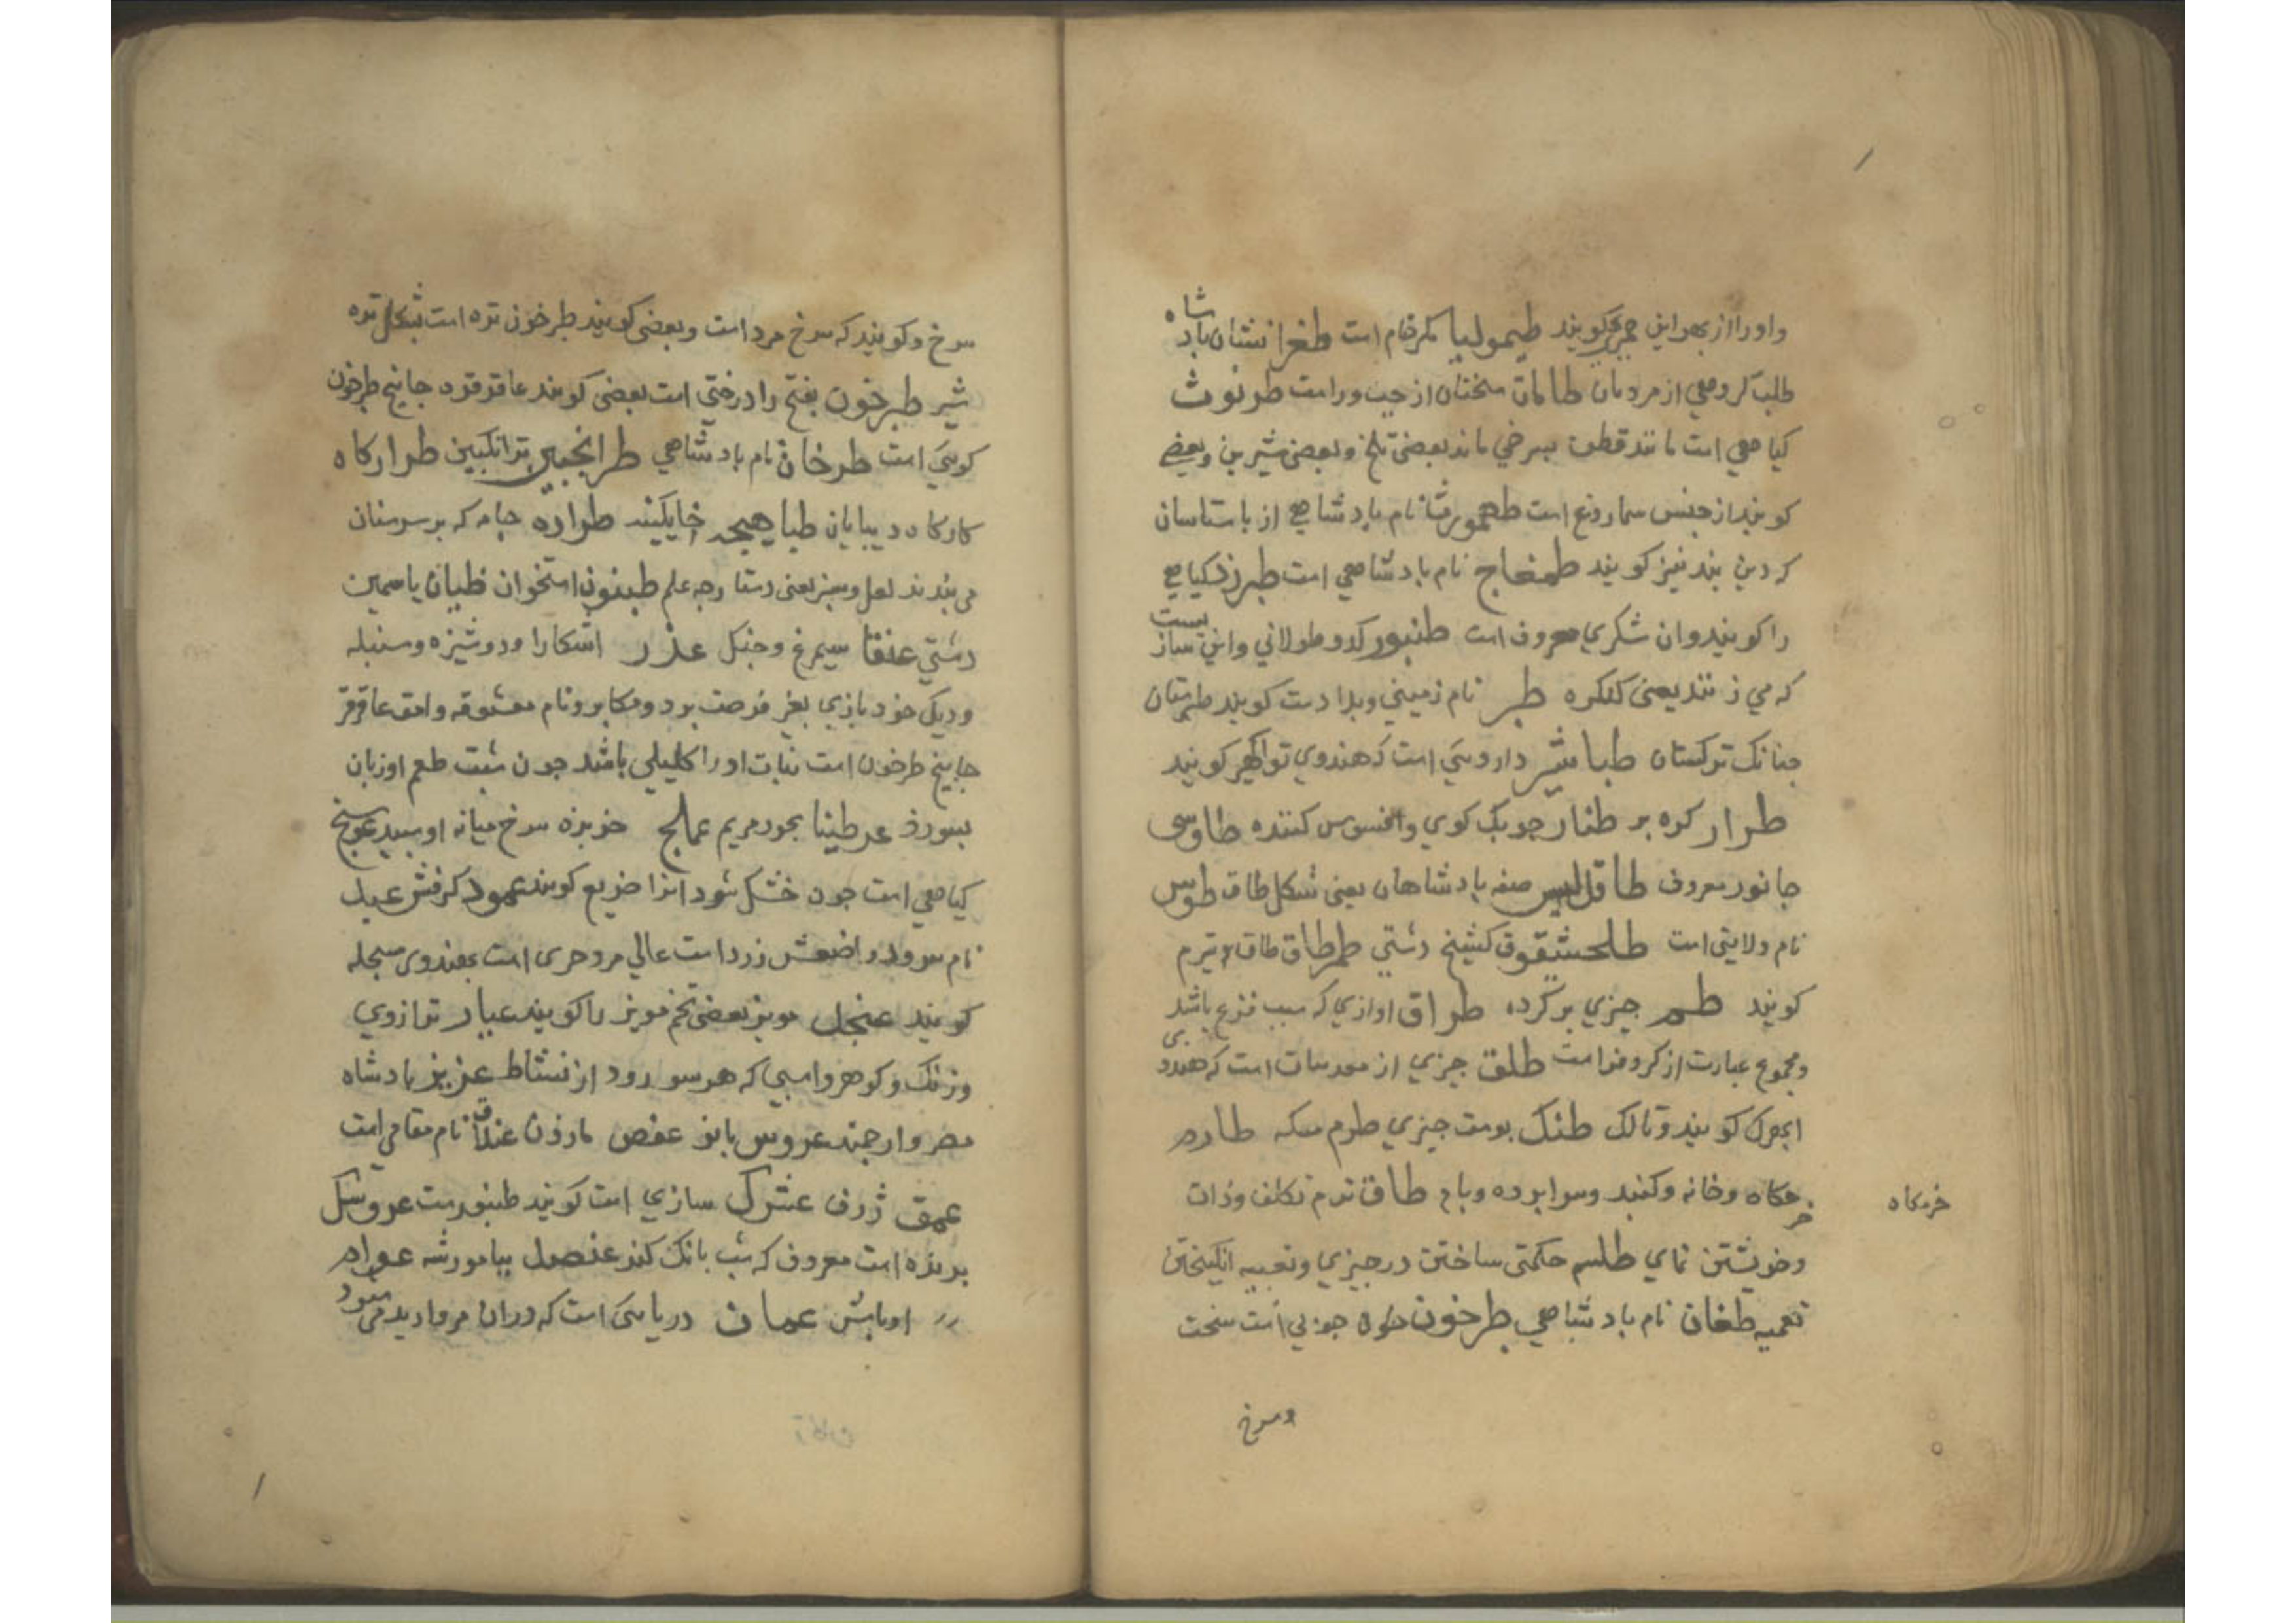 واورا از بهر این گویند طیمولیا مگر قام است طغرا نشان باد شاه
طلب گروهی از مردمان طامات سخنان از چپ و راست طرنوث
کیاهی است مانند قطن بسرخی ماند بعضی تلخ و بعضی شیرین و بعضی
کویند از جنس سماروغ است طهمورث نام بادشاهی از باستانیان
که دیو بند نیز کویند طمغاج نام بادشاهی است طبرزد کیاهی
را کویند وان شکری معروف است طنبور کدو طولانی و این ساز بیست
که می زنند یعنی کنکره طبر نام زمینی و بدا دست کویند طبرستان
جنانک ترکستان طباشیر داروئی است که هندوی تواکهیر کویند
طرار کره بر طناز جوبک کوی و افسوس کننده طاوسی
جانور معروف طاقدیس صفه بادشاهان یعنی شکل طاق طوس
نام ولایتی است طلحشقوق کشنیج دشتی طمرطاق طاق لاتیرم
کویند طم جیزی بر کرده طراق اوازی که سبب فزع باشد
و مجموع عبارت از کر و فر است طلق جیزی از معدنیات است که هندوی
ابهرک کویند و تالک طنک بوست جیزی طرم سکه طارم
خرکاه و خانه و کنبد و سرابرده و بام طاق ترم تکلف و ذات
خرمکاه
و خویشتن نمای طلسم حکمتی ساختن در جیزی و تعبیه انکیختن
تعمیه طغان نام بادشاهی طرخون جوبی است سخت
و سرخ
سرخ و کویند که سرخ مرد است و بعضی کویند طرخون توه است بشکل توه
شیر طبرخون بفتح را درختی است بعضی کویند عاقرقره جابیخ طرخون
کوهی است طرخان نام بادشاهی طرانجبین ترانکبین طرار کاه
کارکاه دیبایان طباهیجه خایکینه طراده جامه که بر سر سنان
می بندند لعل و سبز یعنی دستارجه علم طبنون استخوان ظیان یاسمین
دشتی عنقا سیمرغ و جنکل عذر اشکارا و دوشیزه و سنبله
و دیک خود بازی بغیر فرصت بود و مکابر و نام معشوقه وامق عاقرقر
جابیخ طرخون است نبات اورا کلیلی باشد جون شبت طعم او زبان
بسوزد عرطینا بخور مریم عماج خربزه سرخ میانه او سبید عوسج
کیاهی است جون خشک شود انرا ضریع کویند عمود کرفش عبل
نام سرود و اضعش زرد است عالی مروحری است بهندوی سجله
کویند عنجل مویز بعضی تخم مویز را کویند عیار ترازوی
و زنک و کوهر و اسبی که هر سو رود از نشاط عزیز بادشاه
مصر و ارجمند عروس بانو عفص مازون عناق نام مقامی است
عمق ژرف عشرک سازی است کویند طنبور ست عروسک
برنده است معروف که شب بانک کند عنصل بیامورشه عوام
اوباش عمان دریائی است که دران مروارید می شود